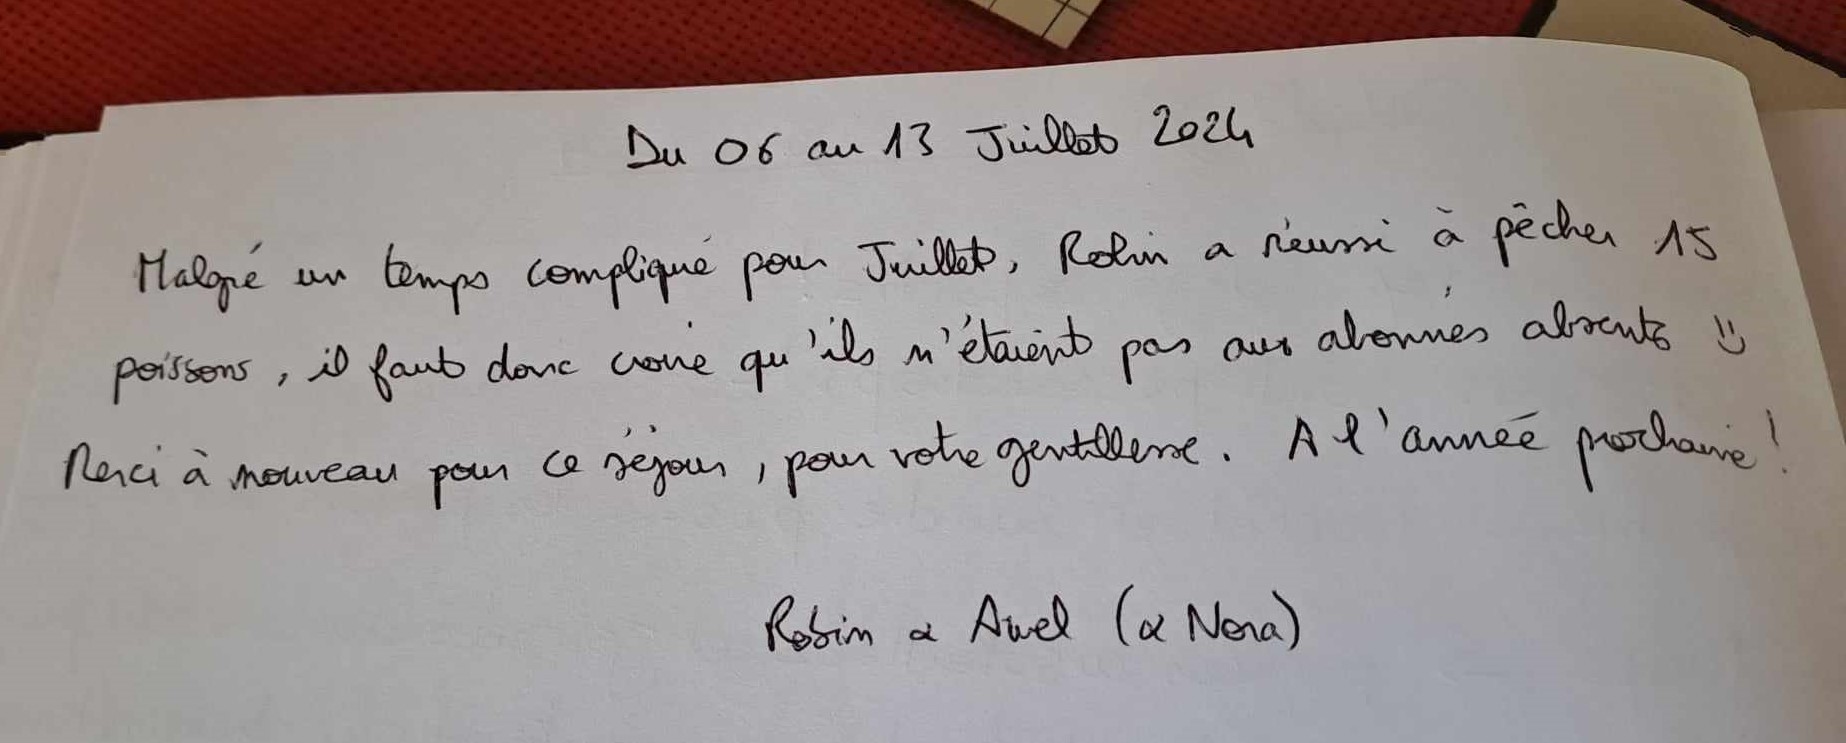 Du 06 au 13 Juillet 2024
Malgré un temps compliqué pour Juillet, Robin a réussi à pêcher 15
poissons, il faut donc croire qu'ils n'étaient pas aux abonnés absents :)
Merci à nouveau pour ce séjour, pour votre gentillesse. A l'année prochaine !
Robin & Awel (& Nora)